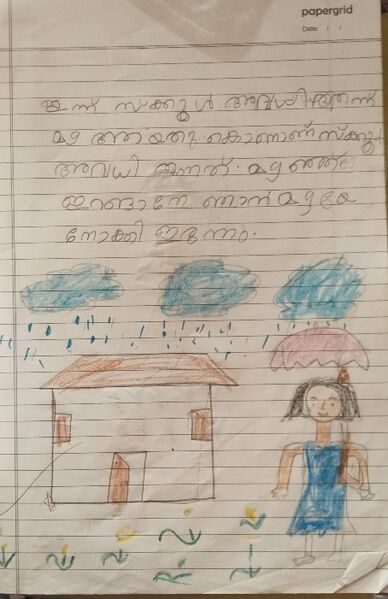 papergrid
Date: / /
ഇന്ന് സ്ക്കൂൾ അവധിആണ്
മഴ ആയതു കൊണാണ് സ്ക്കൂൾ
അവധി തന്നത്. മഴ അത്
ഇറങ്ങാതേ ഞാൻ മഴയെ
നോക്കി ഇരുന്നു.